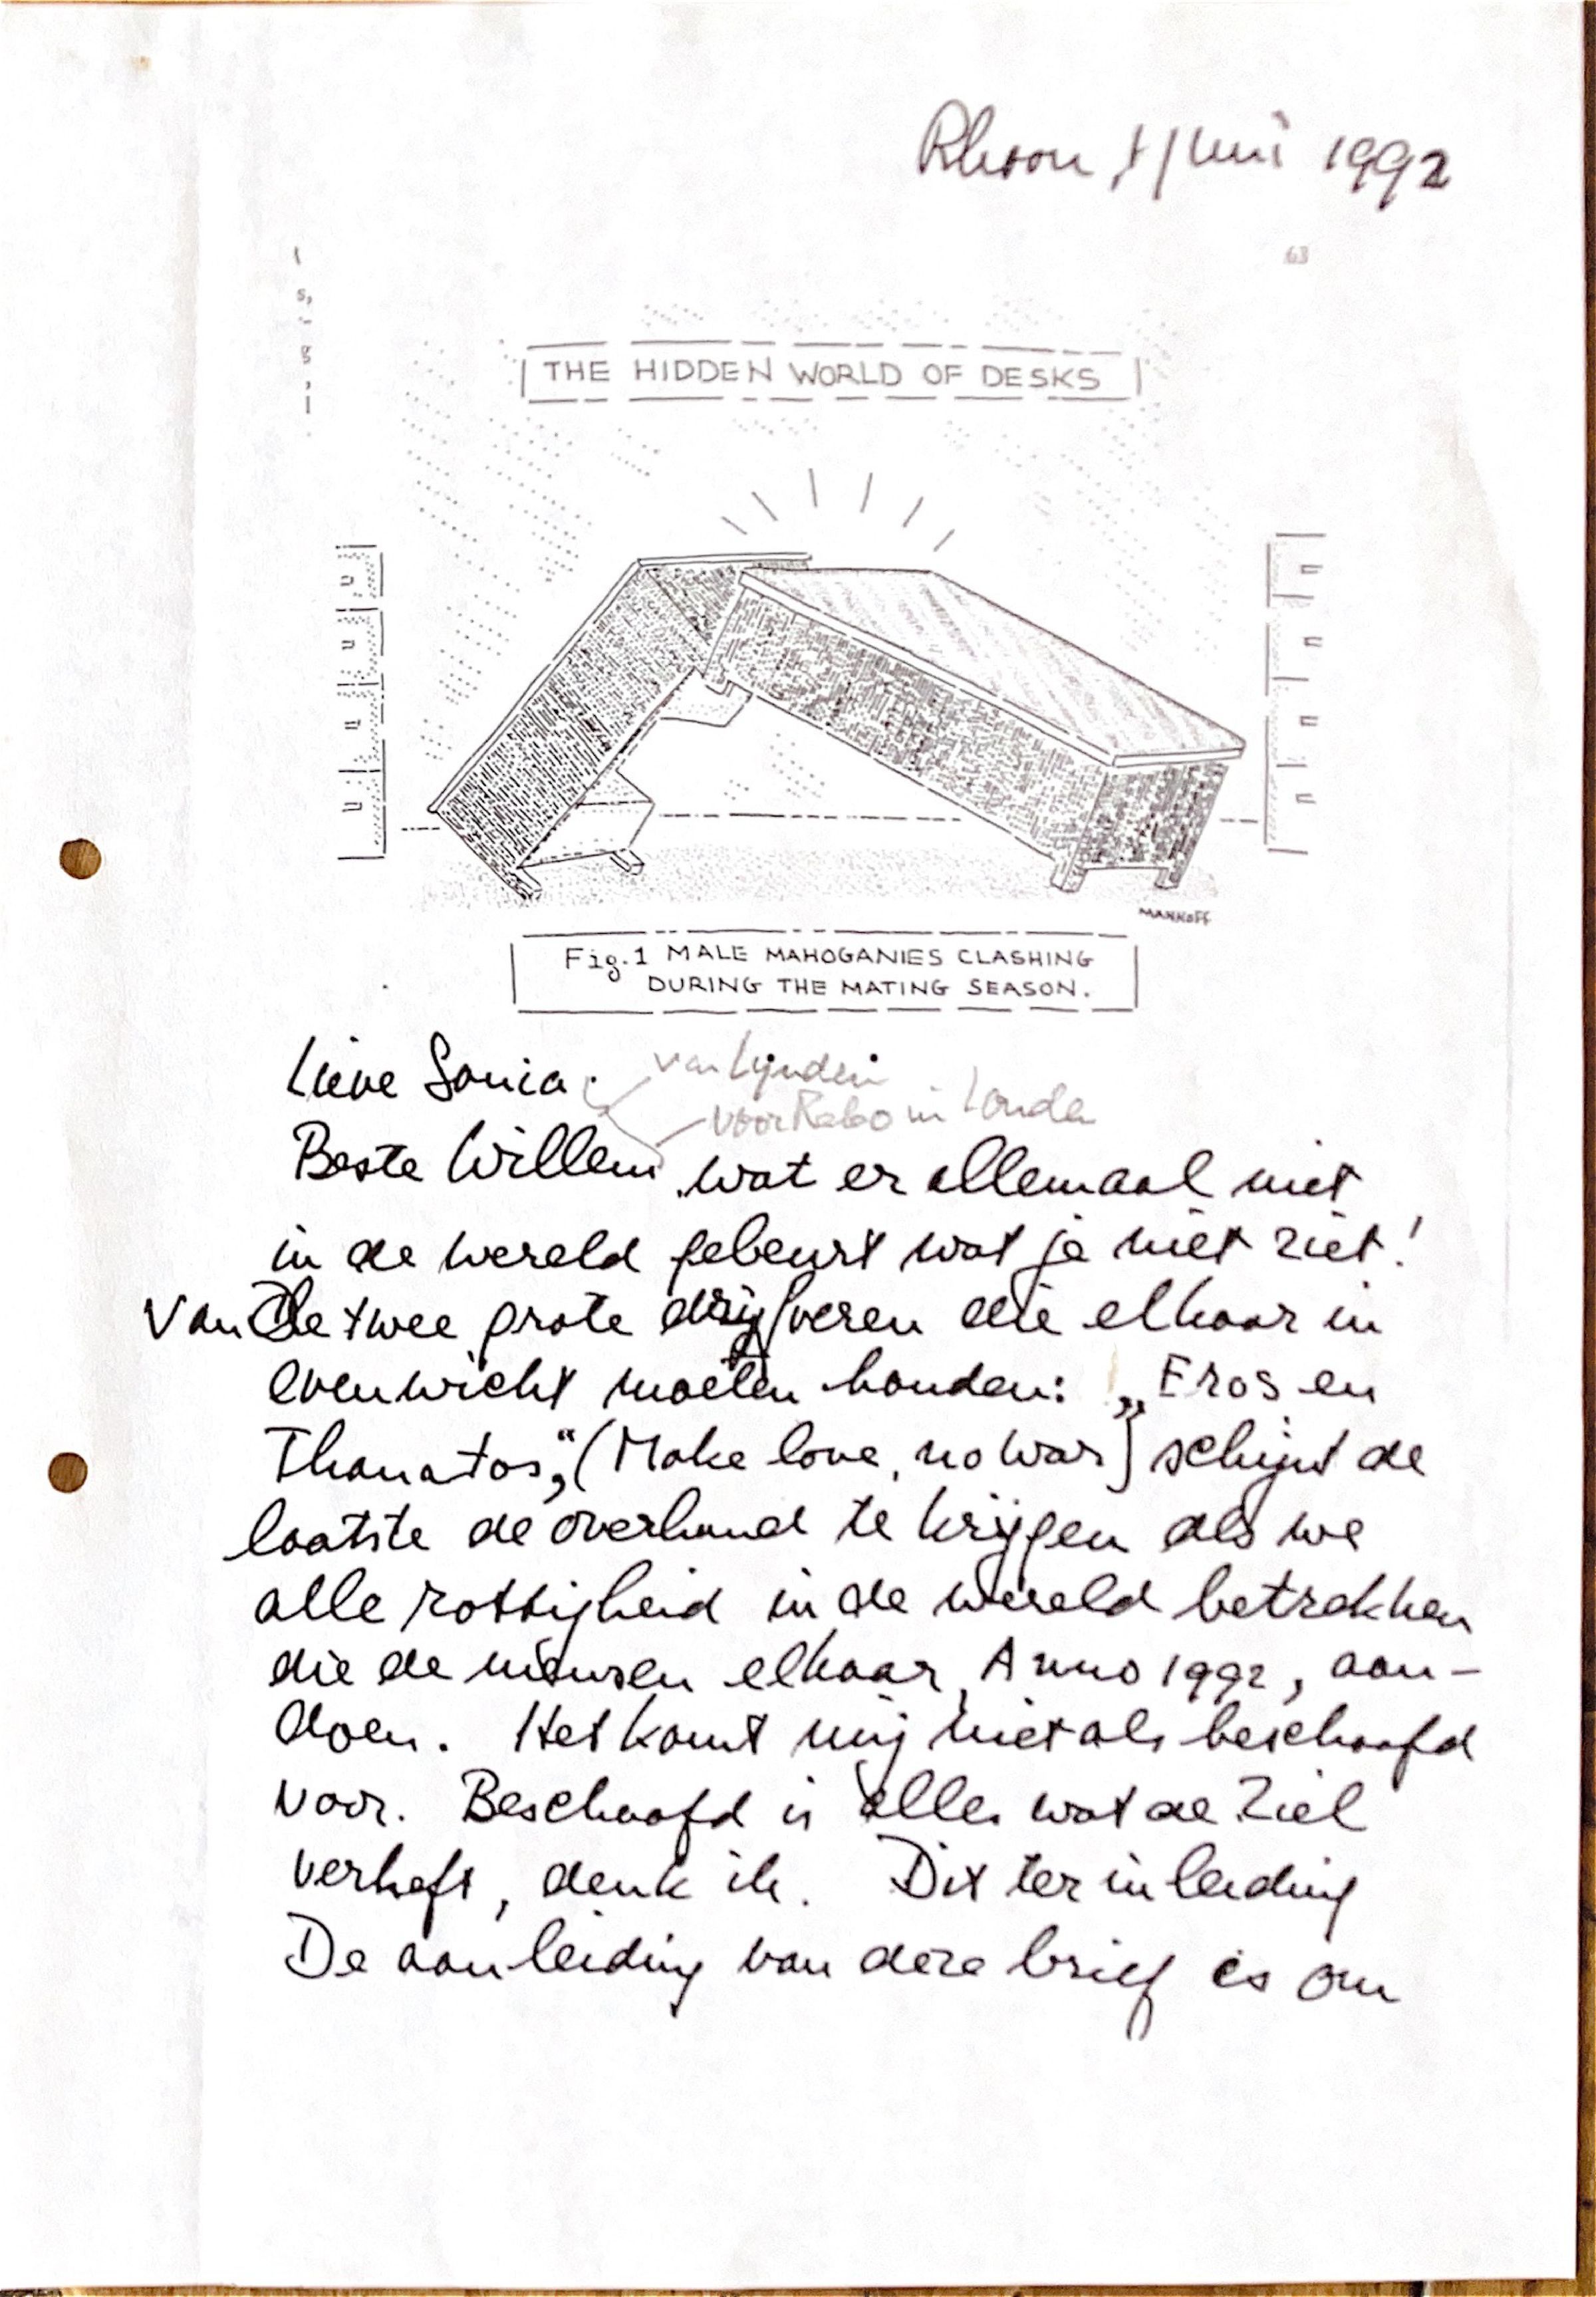 Rhoon, juni 1992
63
s,
-
g
;
i
THE HIDDEN WORLD OF DESKS
MANKOFF
Fig. 1 MALE MAHOGANIES CLASHING
DURING THE MATING SEASON.
Lieve Sonia
van Lynden
voor Rabo in Londen
Beste Willem, wat er allemaal niet
in de wereld gebeurt wat je niet ziet!
Van De twee grote drijfveren die elkaar in
evenwicht moeten houden: „Eros en
Thanatos", (Make love, no war) schijnt de
laatste de overhand te krijgen als we
alle rottigheid in de wereld betrekken
die de mensen elkaar, Anno 1992, aan-
doen. Het komt mij niet als beschaafd
voor. Beschaafd is alles wat de Ziel
verheft, denk ik. Dit ter inleiding
De aanleiding van deze brief is om